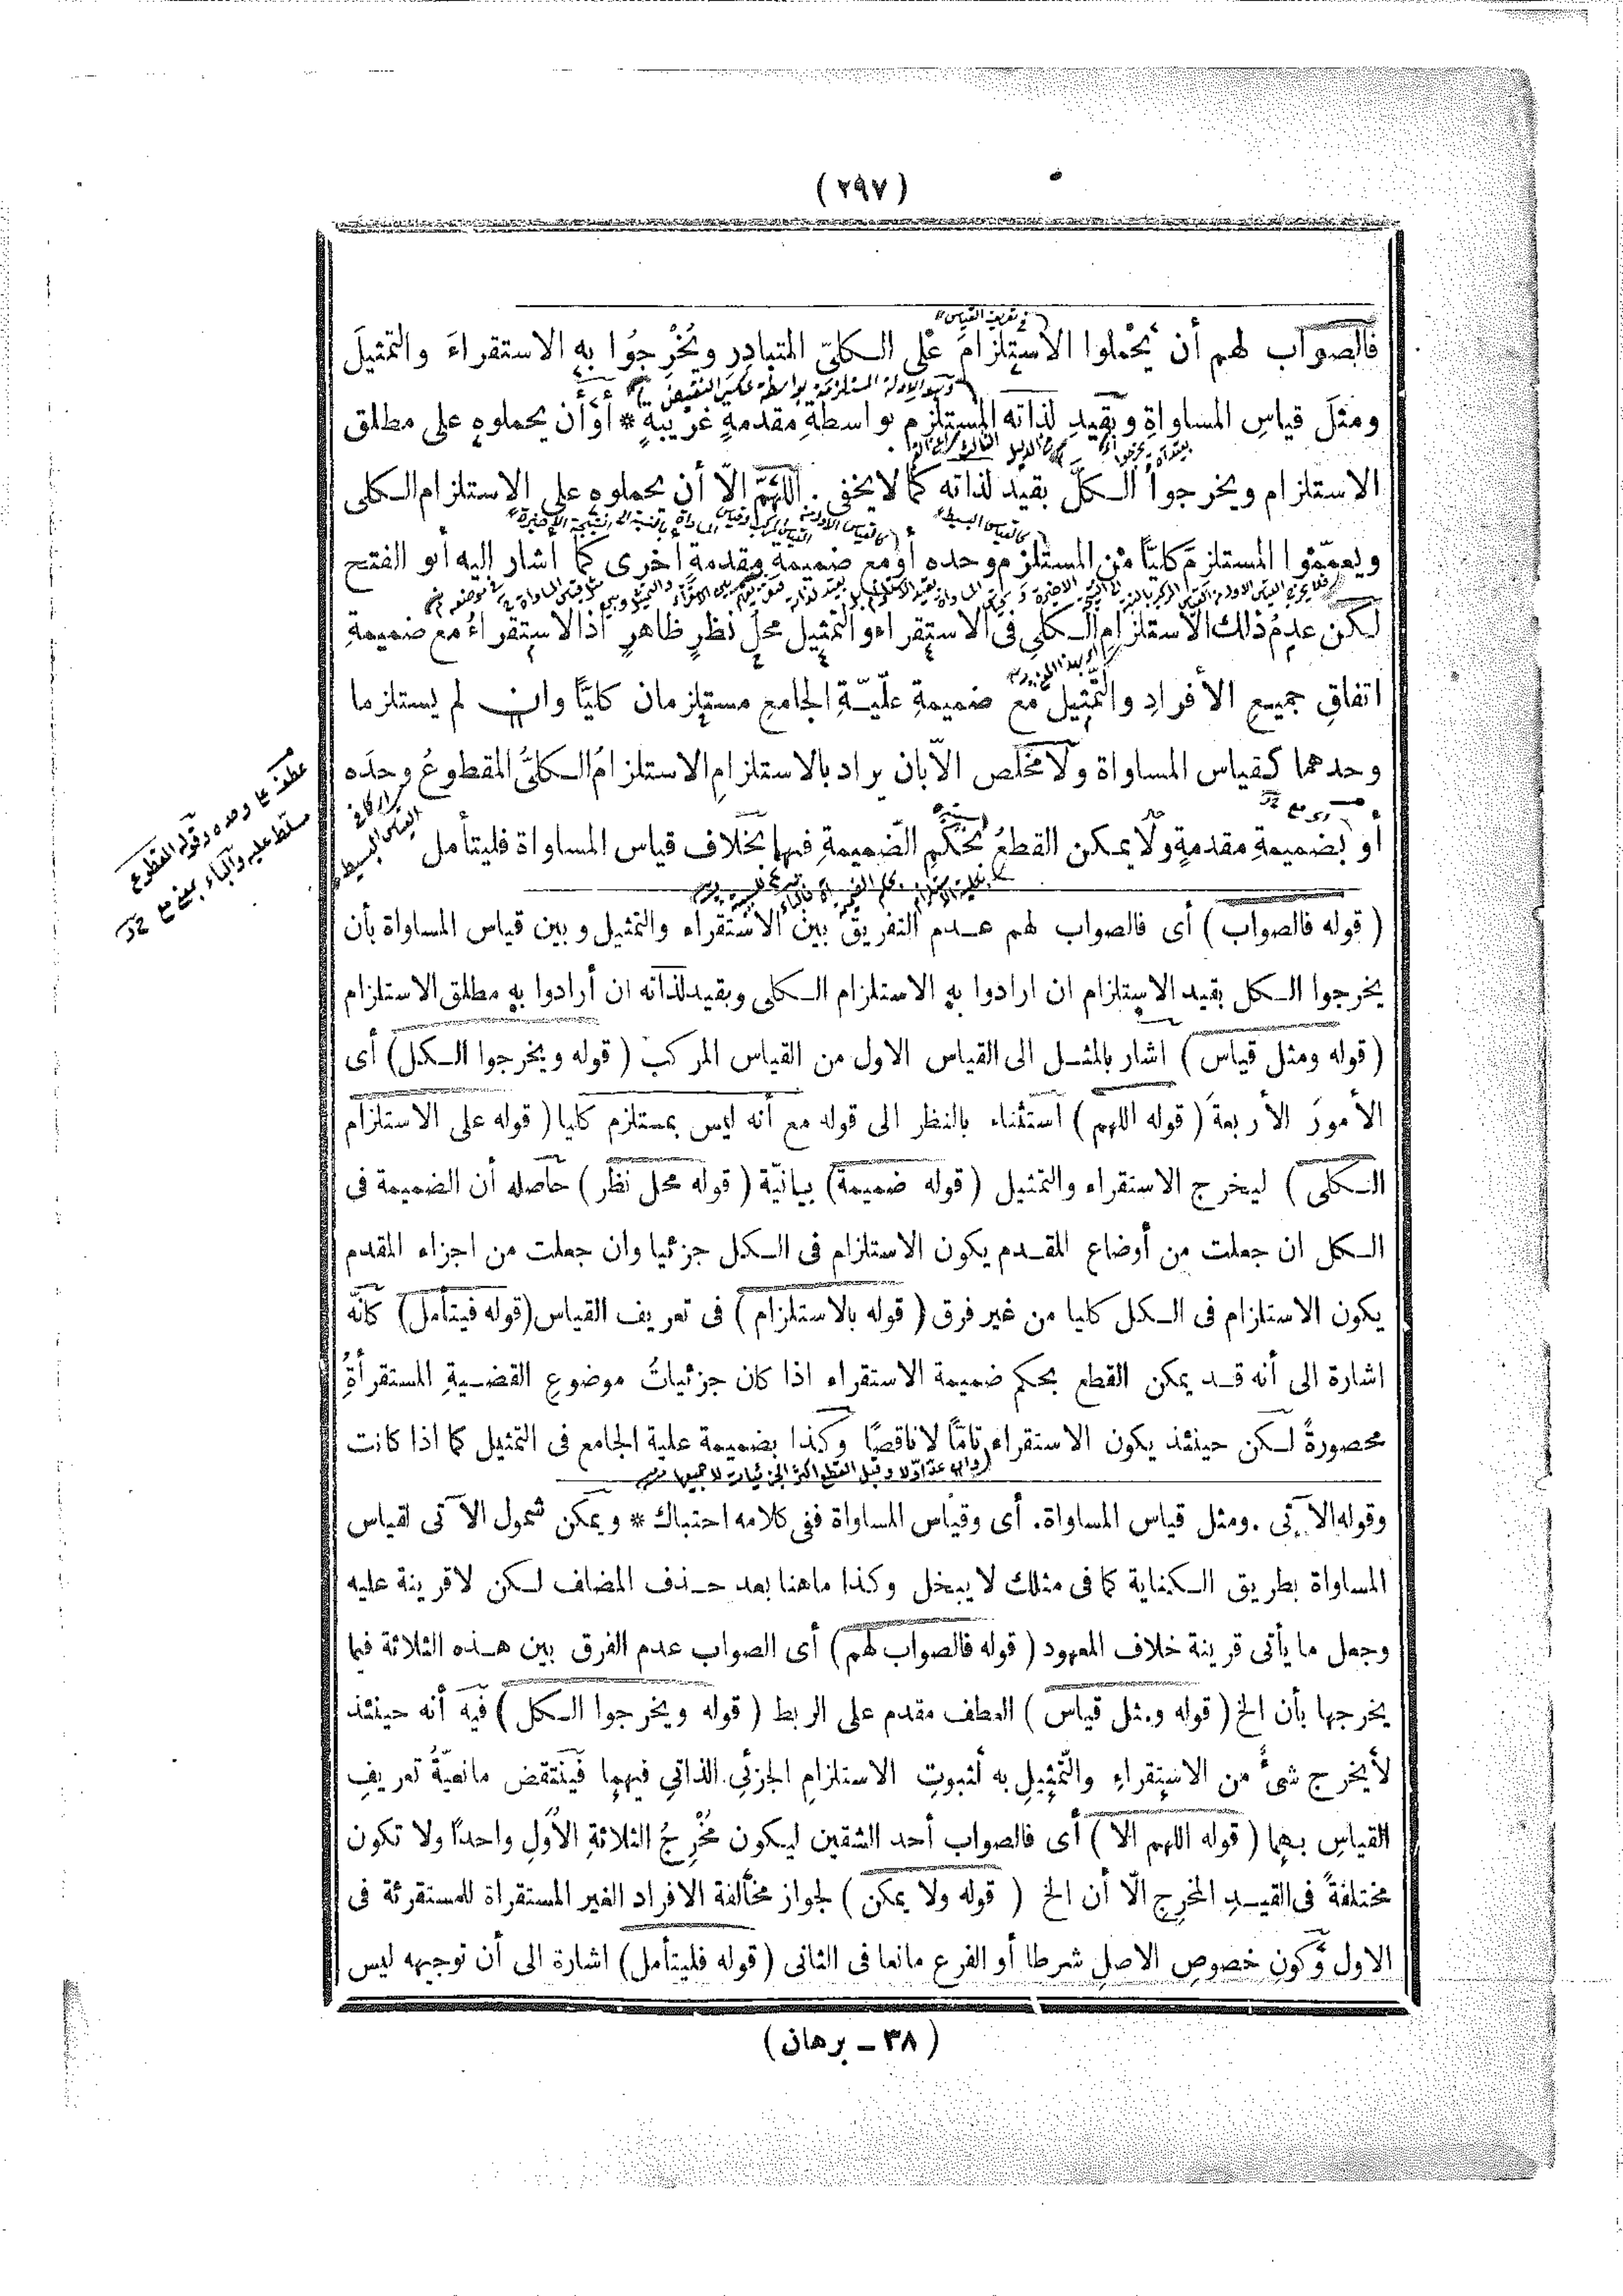 (٢٩٧)
فالصواب لهم أن يَحْملوا الاستلزامَ على الكلىّ المتبادِرِ ويُخْرِجُوا به الاستقراءَ والتمثيلَ
ومثلَ قياسِ المساواةِ وبقيدِ لذاته المستلزم بواسطةِ مقدمةٍ غريبةٍ * أو أن يحملوه على مطلق
الاستلزام ويخرجوا الكلَّ بقيد لذاته كما لا يخفى . اللهُمَّ الّا أن يحملوه على الاستلزام الكلى
ويعمّموا المستلزمَ كليًّا من المستلزم وحده أو مع ضميمةِ مقدمةٍ أخرى كما أشار اليه أبو الفتح
لكن عدمُ ذلك الاستلزامِ الكلىِ فى الاستقراء والتمثيل محلُ نظرٍ ظاهرٍ اذ الاستقراءُ مع ضميمةِ
اتفاقِ جميعِ الأفرادِ والتّمثيل مع ضميمةِ علّيّةِ الجامعِ مستلزمان كليًّا وان لم يستلزما
وحدهما كقياس المساواة ولا مخلَص الّا بان يراد بالاستلزامِ الاستلزامُ الكلىُّ المقطوعُ وحدَه
أو بضميمةِ مقدمةٍ ولا يمكن القطعُ بحكمِ الضّميمةِ فيهما بخلاف قياس المساواة فليتأمل
(قوله فالصواب) أى فالصواب لهم عدم التفريق بين الاستقراء والتمثيل وبين قياس المساواة بأن
يخرجوا الكل بقيد الاستلزام ان ارادوا به الاستلزام الكلى وبقيد لذاته ان أرادوا به مطلق الاستلزام
(قوله ومثل قياس) اشار بالمثل الى القياس الاول من القياس المركب (قوله ويخرجوا الكل) أى
الأمورَ الأربعةَ (قوله اللهم) استثناء بالنظر الى قوله مع أنه ليس بمستلزم كليا (قوله على الاستلزام
الكلى) ليخرج الاستقراء والتمثيل (قوله ضميمة) بيانيّة (قوله محل نظر) حاصله أن الضميمة فى
الكل ان جعلت من أوضاع المقدم يكون الاستلزام فى الكل جزئيا وان جعلت من اجزاء المقدم
يكون الاستلزام فى الكل كليا من غير فرق (قوله بالاستلزام) فى تعريف القياس (قوله فيتأمل) كانّه
اشارة الى أنه قد يمكن القطع بحكم ضميمة الاستقراء اذا كان جزئياتُ موضوعِ القضيةِ المستقرأةِ
محصورةً لكن حينئذ يكون الاستقراء تامّا لا ناقصًا وكذا بضميمة علية الجامع فى التمثيل كما اذا كانت
وقوله الآتى . ومثل قياس المساواة . أى وقياس المساواة ففى كلامه احتباك * ويمكن شمول الآتى لقياس
المساواة بطريق الكناية كما فى مثلك لا يبخل وكذا ما هنا بعد حذف المضاف لكن لا قرينة عليه
وجعل ما يأتى قرينة خلاف المعهود (قوله فالصواب لهم) أى الصواب عدم الفرق بين هذه الثلاثة فيما
يخرجها بأن الخ (قوله ومثل قياس) العطف مقدم على الربط (قوله ويخرجوا الكل) فيه أنه حينئذ
لا يخرج شئٌ من الاستقراءِ والتّمثيلِ به لثبوتِ الاستلزامِ الجزئىِ الذاتىِ فيهما فينتقض مانعيّةُ تعريفِ
القياسِ بهما (قوله اللهم الا) أى فالصواب أحد الشقين ليكون مُخْرِجُ الثلاثةِ الأوَلِ واحدًا ولا تكون
مختلفةً فى القيدِ المخرِجِ الّا أن الخ (قوله ولا يمكن) لجواز مخالفة الافراد الغير المستقراة للمستقرئة فى
الاول وكونِ خصوصِ الاصلِ شرطا أو الفرع مانعا فى الثانى (قوله فليتأمل) اشارة الى أن توجيهه ليس
(٣٨ ـ برهان)